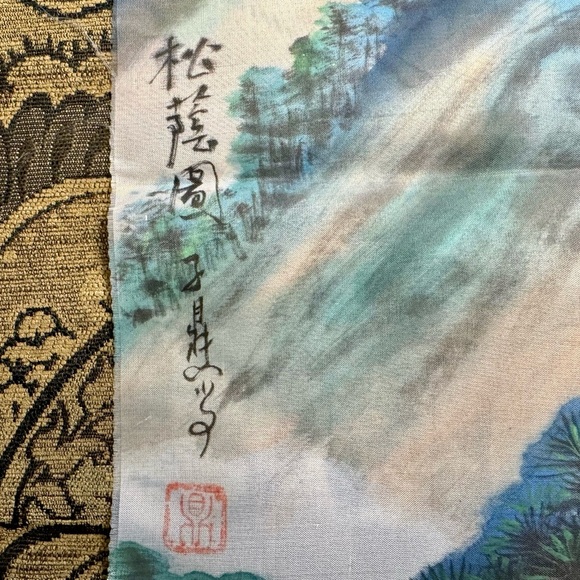 松蔭圖 子鼎寫
鼎